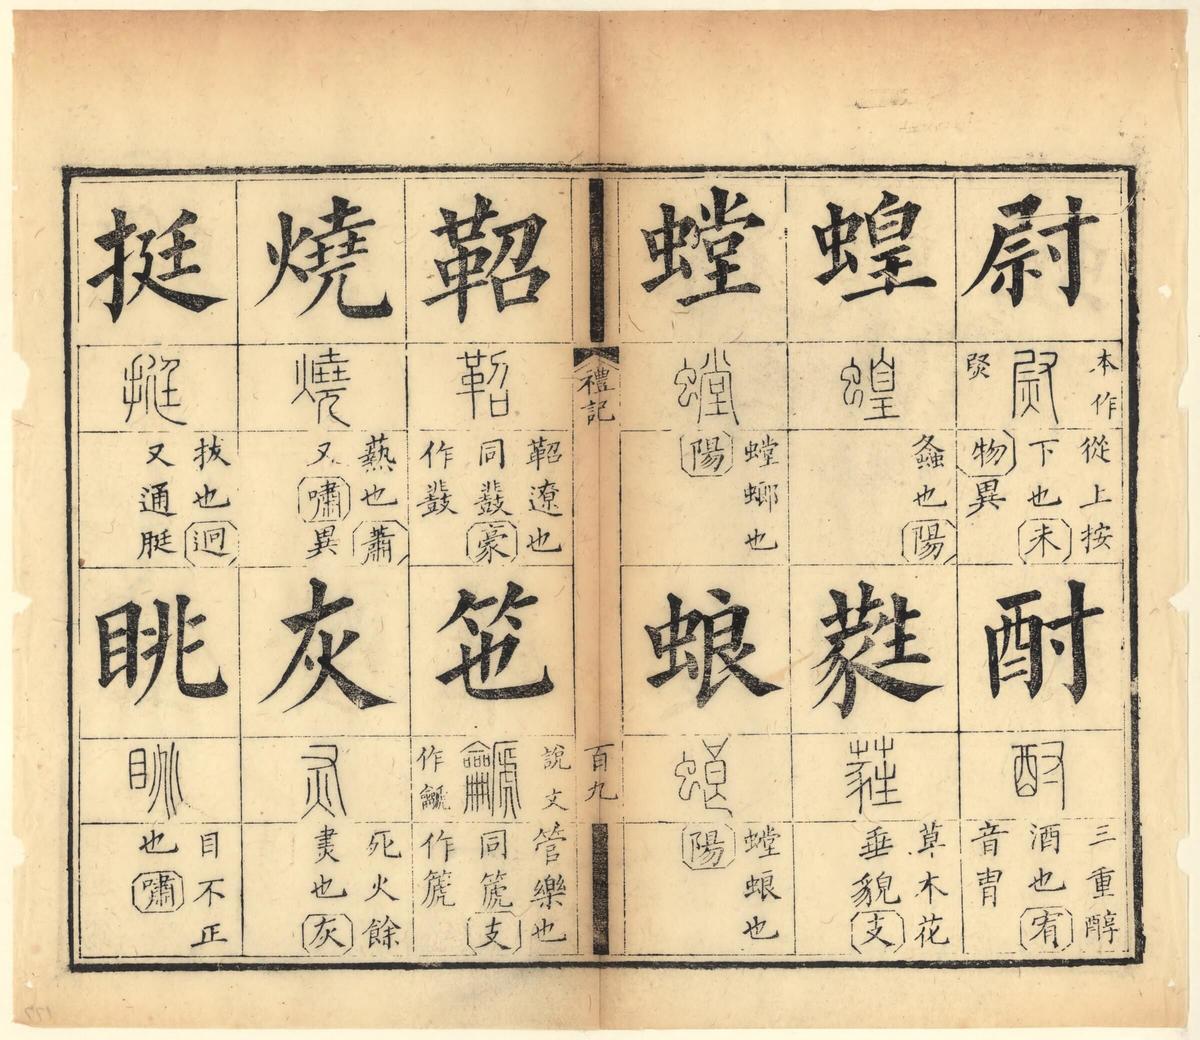 尉
本作
𤈫
從上按
下也 未
物 異
酎
三重醇
酒也 宥
音胄
蝗
螽也 陽
蕤
草木花
垂貌 支
螳
螳螂也
陽
蜋
螳蜋也
陽
禮記
百九
鞀
鞀遼也
同鼗 豪
作鼗
竾
說文
作龥
管樂也
同篪 支
作篪
燒
爇也 蕭
又 嘯 異
灰
死火餘
燼也 灰
挺
拔也 迥
又通脡
眺
目不正
也 嘯